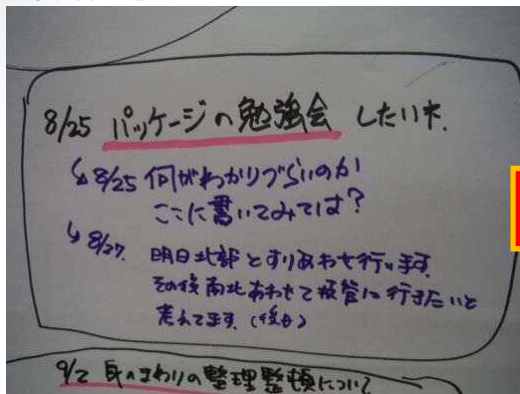 8/25 パッケージの勉強会 したいネ.
↳ 8/25 何がわかりづらいのか
ここに書いてみては?
↳ 8/27. 明日北部とすりあわせ行います.
その後南北あわせて 行きたいと
考えてます.
9/2 身のまわりの整理整頓について